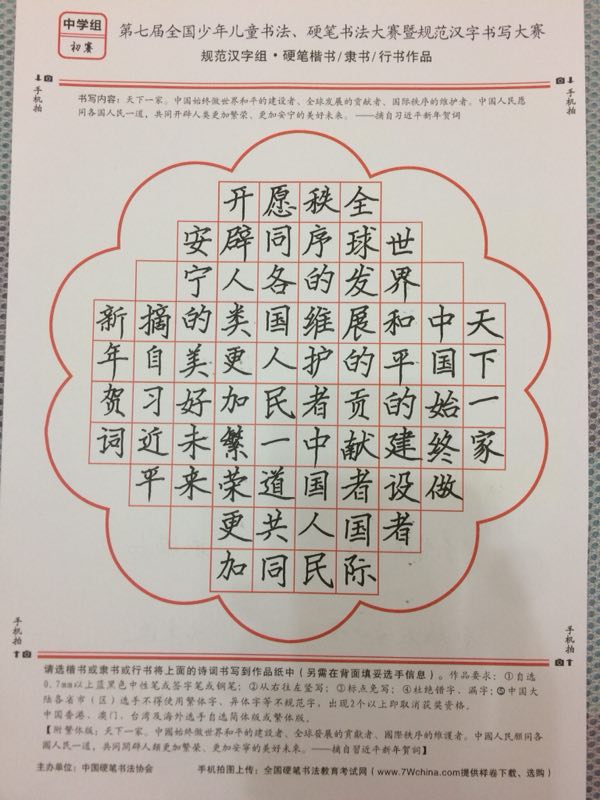 中学组
初赛
第七届全国少年儿童书法、硬笔书法大赛暨规范汉字书写大赛
规范汉字组·硬笔楷书/隶书/行书作品
手机拍
手机拍
书写内容：天下一家。中国始终做世界和平的建设者、全球发展的贡献者、国际秩序的维护者。中国人民愿
同各国人民一道，共同开辟人类更加繁荣、更加安宁的美好未来。——摘自习近平新年贺词
天下一家
中国始终做
世界和平的建设者
全球发展的贡献者国际
秩序的维护者中国人民
愿同各国人民一道共同
开辟人类更加繁荣更加
安宁的美好未来
摘自习近平
新年贺词
手机拍
手机拍
请选楷书或隶书或行书将上面的诗词书写到作品纸中（另需在背面填妥选手信息）。作品要求：①自选
0.7mm以上蓝黑色中性笔或签字笔或钢笔；②从右往左竖写；③标点免写；④杜绝错字、漏字；⑤中国大
陆各省市（区）选手不得使用繁体字、异体字等不规范字，出现2个以上即取消获奖资格。
中国香港、澳门、台湾及海外选手自选简体版或繁体版。
【附繁体版：天下一家。中國始終做世界和平的建設者、全球發展的貢獻者、國際秩序的維護者。中國人民願同各
國人民一道，共同開闢人類更加繁榮、更加安寧的美好未來。——摘自習近平新年賀詞】
主办单位：中国硬笔书法协会 手机拍图上传：全国硬笔书法教育考试网（www.7Wchina.com提供样卷下载、选购）